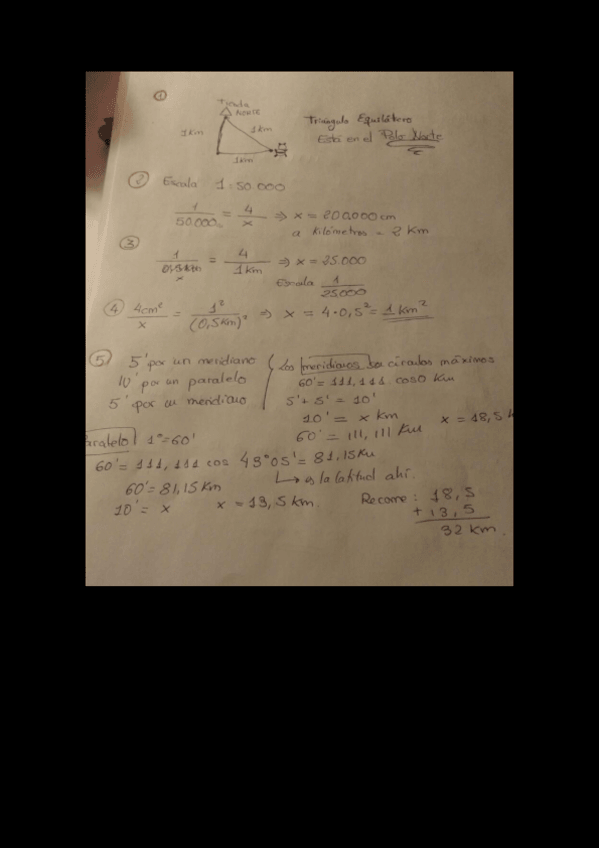 ①
Tienda
NORTE
1km
1km
1km
Triángulo Equilátero
Está en el Polo Norte
② Escala 1:50.000
1/50.000 = 4/x ⇒ x = 200.000 cm
a kilómetros = 2 Km
③
1/x = 4/1km ⇒ x = 25.000
Escala 1/25.000
④ 4cm²/x = 1²/(0,5Km)² ⇒ x = 4·0,5² = 1 km²
⑤ 5' por un meridiano
10' por un paralelo
5' por un meridiano
Los meridianos son círculos máximos
60' = 111,111 cos0 Km
5'+5' = 10'
10' = x km
60' = 111,111 Km
x = 18,5 k
aralelo 1°=60'
60' = 111,111 cos 43°05' = 81,15Km
↳ es la latitud ahí.
60' = 81,15 Km
10' = x x = 13,5 km.
Recorre: 18,5
+ 13,5
32 km.